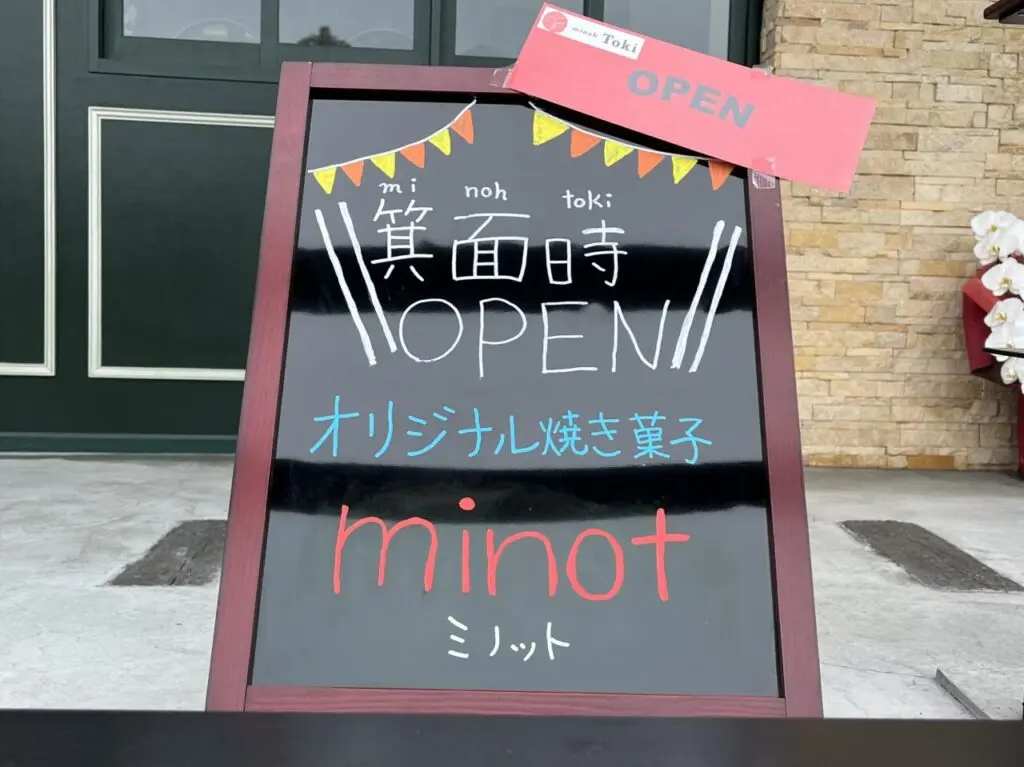 minoh Toki
OPEN
mi noh toki
箕面時
OPEN
オリジナル焼き菓子
minot
ミノット